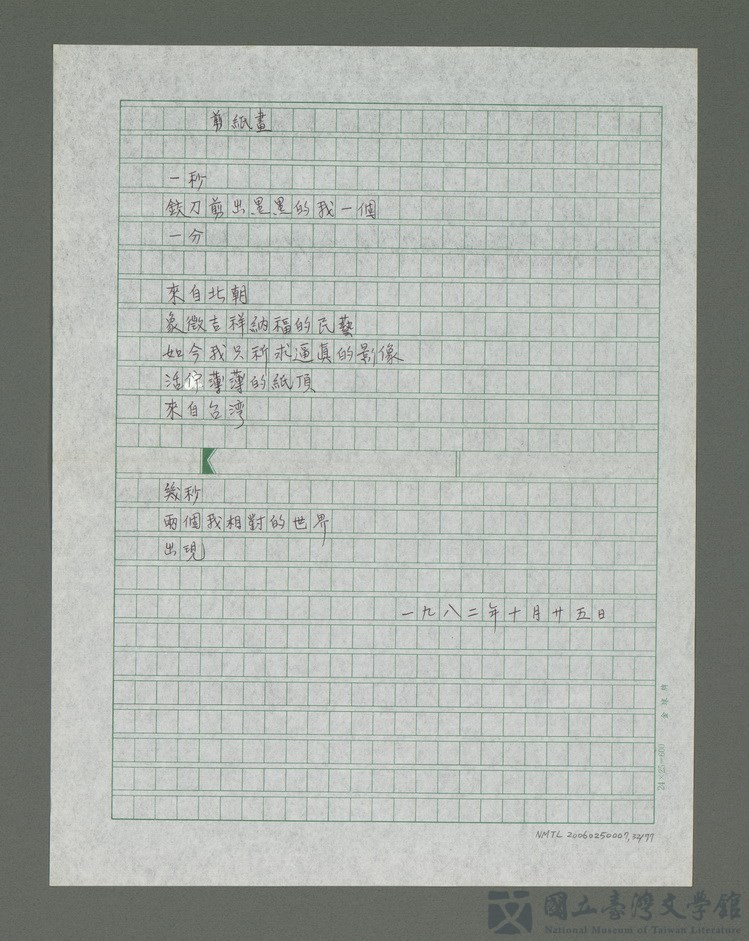 剪紙畫
一秒
鉸刀剪出黑黑的我一個
一分
來自北朝
象徵吉祥納福的民藝
如今我只祈求逼真的影像
活佇薄薄的紙頂
來自台灣
幾秒
兩個我相對的世界
出現
一九八二年十月廿五日
24×25=600
NMTL 20060250007, 32/77
國立臺灣文學館
National Museum of Taiwan Literature